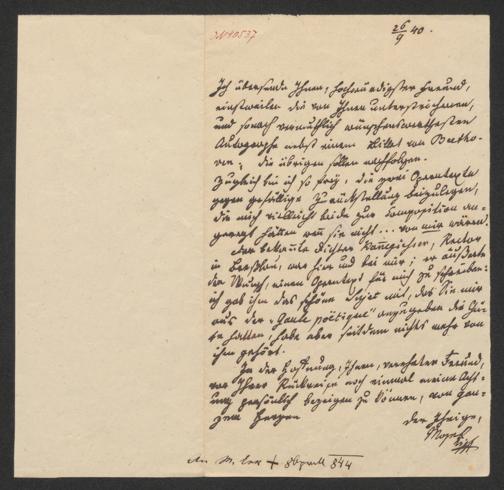 IN 10537
26/9 40.
Ich übersende Ihnen, hochwürdigster Freund,
einstweilen die von Ihnen unterstrichenen,
und sonach vermuthlich wünschenswerthesten
Autographe nebst einem Billet von Beetho-
ven; die übrigen sollen nachfolgen.
Zugleich bin ich so frey, die zwei Operntexte
gegen gefällige Zurückstellung beizulegen,
die mich vielleicht beide zur Composition an-
geregt hätten wenn sie nicht ... von mir wären.
Der bekannte Dichter Kannegiesser, Rector
in Breslau, war hier und bei mir; er äußerte
den Wunsch, einen Operntext für mich zu schreiben.
ich gab ihm das schöne Sujet mit, das Sie mir
aus der "Gaule poëtique" anzugeben die Gü-
te hatten, habe aber seitdem nichts mehr von
ihm gehört.
In der Hoffnung, Ihnen, verehrter Freund,
vor Ihrer Rückreise noch einmal meine Ach-
tung persönlich bezeigen zu können, von gan-
zem Herzen
der Ihrige,
Mosel
844